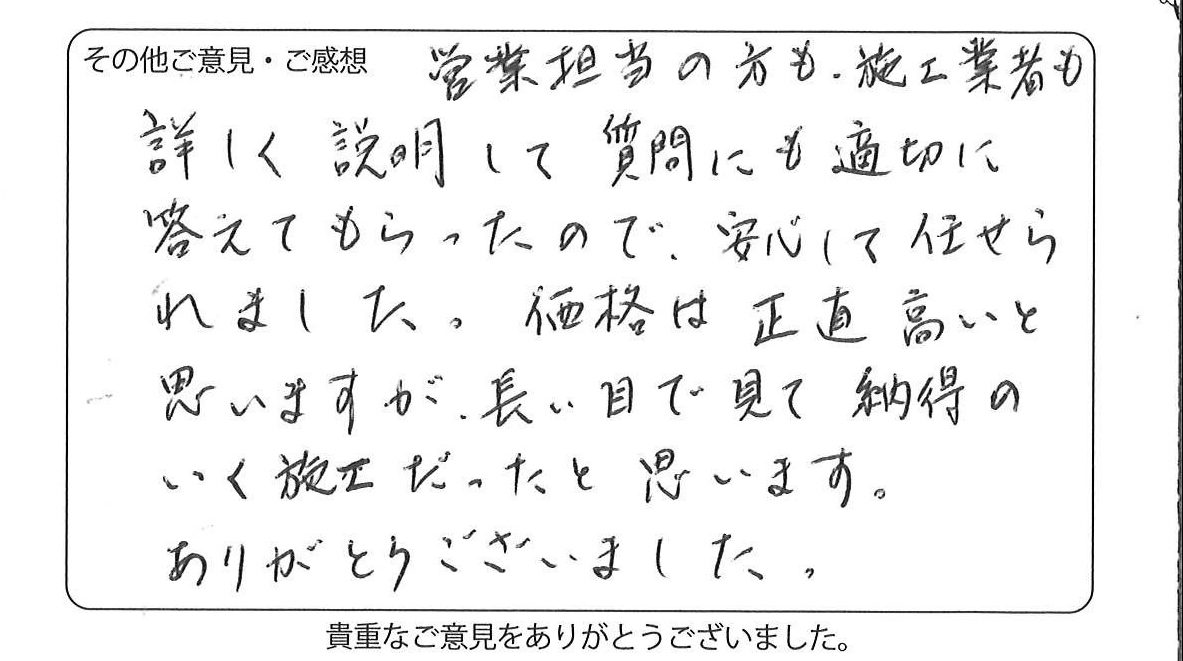 その他ご意見・ご感想 営業担当の方も、施工業者も
詳しく説明して質問にも適切に
答えてもらったので、安心して任せら
れました。価格は正直高いと
思いますが、長い目で見て納得の
いく施工だったと思います。
ありがとうございました。
貴重なご意見をありがとうございました。